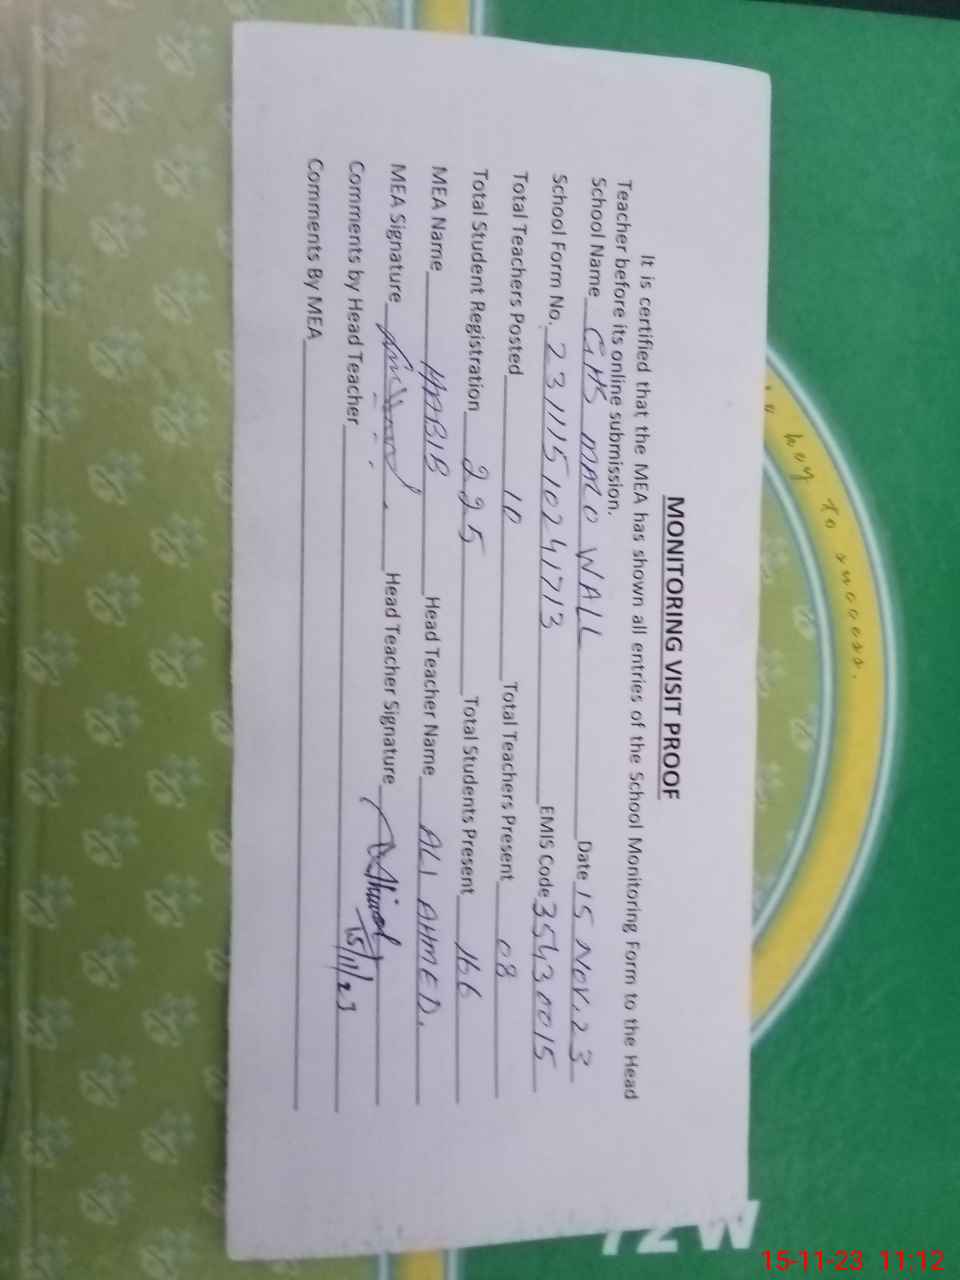 MONITORING VISIT PROOF
It is certified that the MEA has shown all entries of the School Monitoring Form to the Head
Teacher before its online submission.
School Name GHS MALO WALL Date 15 Nov. 23
School Form No. 23111510241713 EMIS Code 35430015
Total Teachers Posted 10 Total Teachers Present 08
Total Student Registration 225 Total Students Present 166
MEA Name HABIB Head Teacher Name ALI AHMED.
MEA Signature Head Teacher Signature
15/11/23
Comments by Head Teacher
Comments By MEA
key to success.
15-11-23 11:12